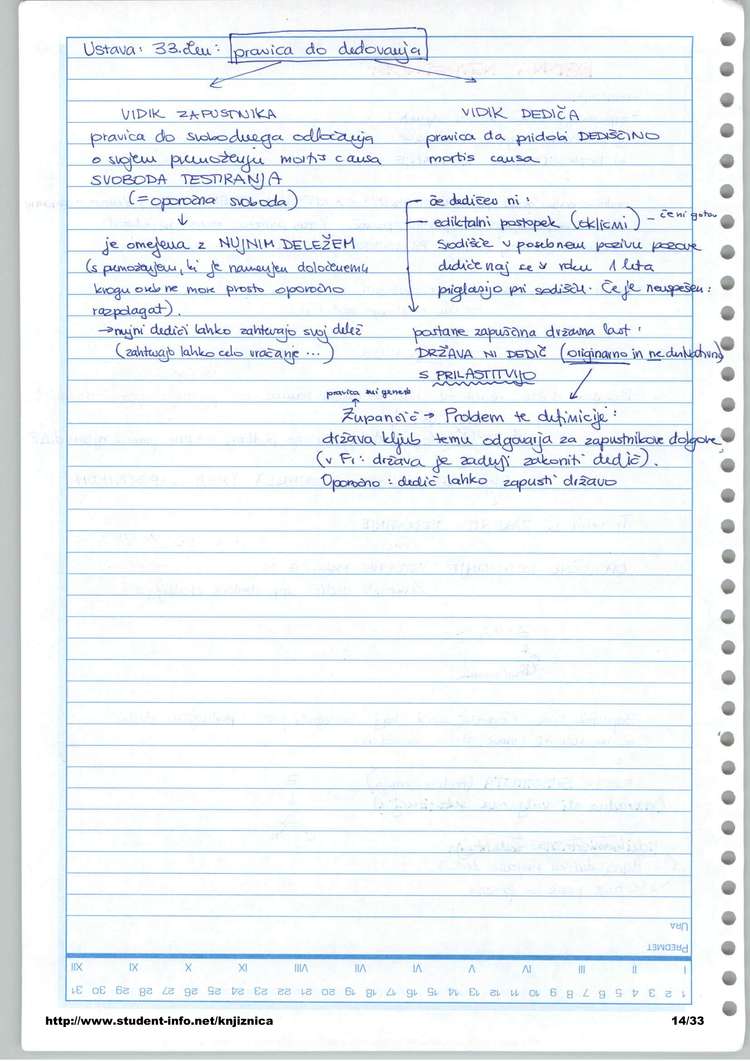 Ustava: 33.člen: pravica do dedovanja
VIDIK ZAPUSTNIKA
pravica do svobodnega odločanja
o svojem premoženju mortis causa
SVOBODA TESTIRANJA
(= oporočna svoboda)
↓
je omejena z NUJNIM DELEŽEM
(s premoženjem, ki je namenjen določenemu
krogu oseb ne more prosto oporočno
razpolagat).
→ nujni dediči lahko zahtevajo svoj delež
(zahtevajo lahko celo vračanje ...)
VIDIK DEDIČA
pravica da pridobi DEDIŠČINO
mortis causa
- če dedičev ni:
- ediktalni postopek (oklicni) - če ni gotov
Sodišče v posebnem pozivu pozove
dediče naj se v roku 1 leta
priglasijo pri sodišču. Če je neuspešen:
postane zapuščina državna last:
DRŽAVA NI DEDIČ (originarno in ne derivativno)
S PRILASTITVIJO
pravica sui generis
↑
Zupančič → Problem te definicije:
država kljub temu odgovarja za zapustnikove dolgove
(v Fr: država je zadnji zakoniti dedič).
Oporočno: dedič lahko zapusti državo
URA
PREDMET
I II III IV V VI VII VIII IX X XI XII
1 2 3 4 5 6 7 8 9 10 11 12 13 14 15 16 17 18 19 20 21 22 23 24 25 26 27 28 29 30 31
http://www.student-info.net/knjiznica 14/33